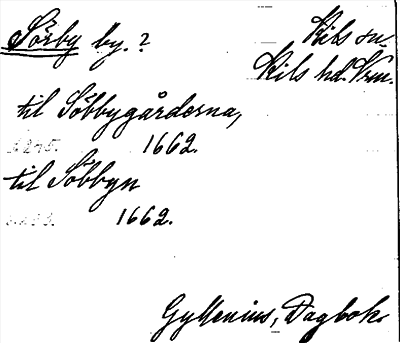 Sörby by.?
Kils sn.
Kils hd. Vrm.
til Söbbygårderna,
s. 275. 1662.
til Söbbyn
1662.
Gyllenius, Dagbok